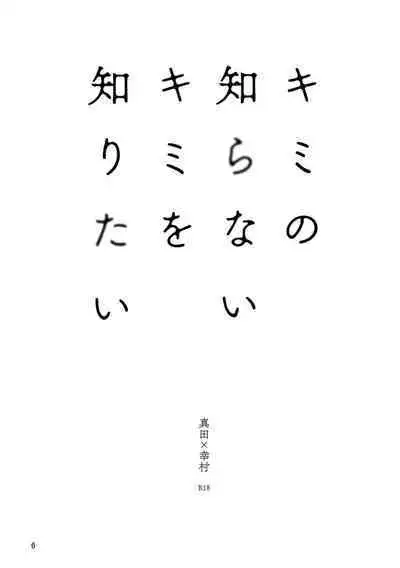 キミの
知らない
キミを
知りたい
真田×幸村
R18
6